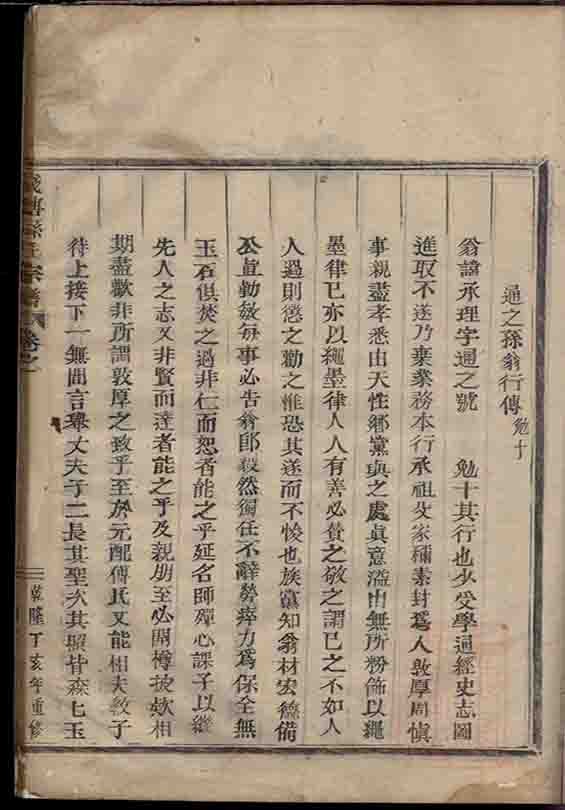 通之孫翁行傳 勉十
翁諱承理字通之號 勉十其行也少受學通經史志圖
進取不遂乃棄業務本行承祖父家稱素封為人敦厚周慎
事親盡孝悉由天性鄉黨與之處眞意溢出無所粉飾以繩
墨律已亦以繩墨律人人有善必賛之敬之謂已之不如人
人過則懲之勸之惟恐其遂而不悛也族黨知翁材宏德備
公直勤敏每事必告翁卽毅然獨任不辭勞瘁力為保全無
玉石俱焚之過非仁而恕者能之乎延名師殫心課子以繼
先人之志又非賢而達者能之乎及親朋至必開樽披欵相
期盡歡非所謂敦厚之致乎至於元配傅氏又能相夫教子
待上接下一無間言舉丈夫子二長其聖次其照皆森七玉
孫氏宗譜 卷之
乾隆丁亥年重修